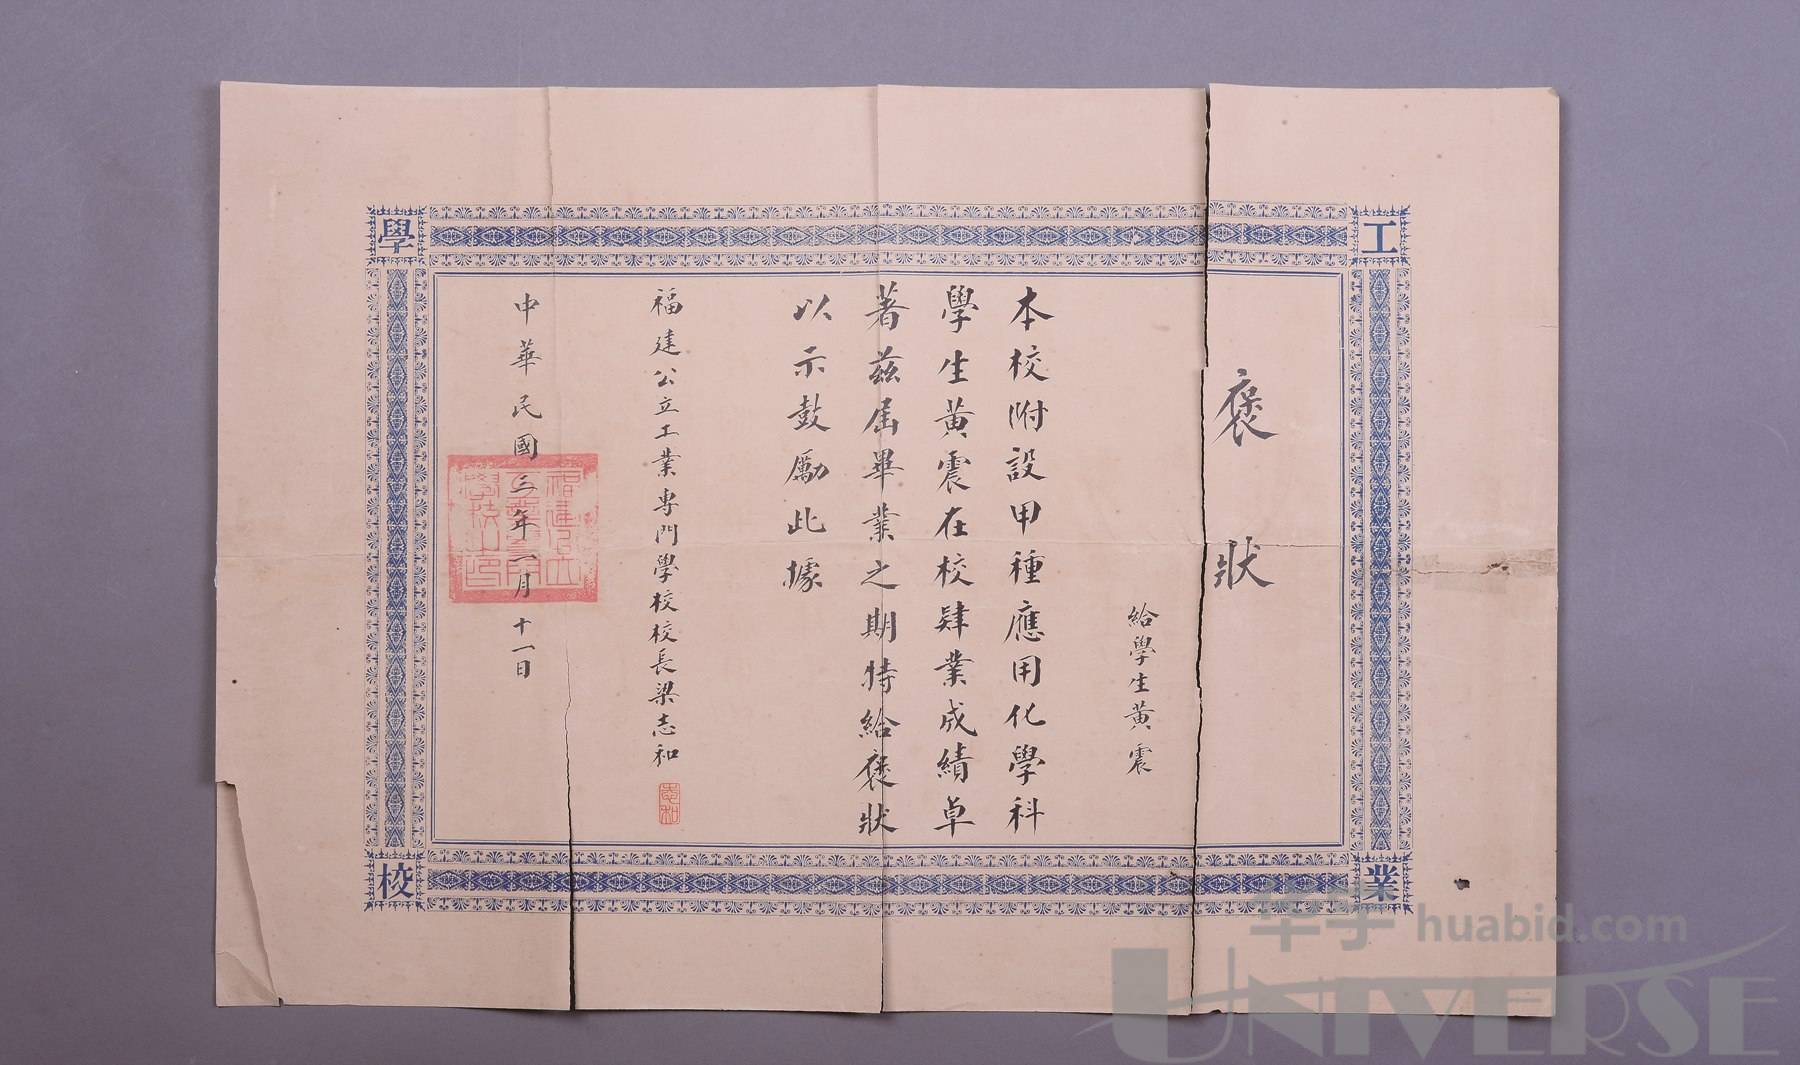 工業學校
褒狀
給學生黄震
本校附設甲種應用化學科
學生黄震在校肄業成績卓
著兹屆畢業之期特給褒狀
以示鼓勵此據
福建公立工業專門學校校長梁志和
志和
中華民國三年一月十一日
华宇 huabid.com
UNIVERSE